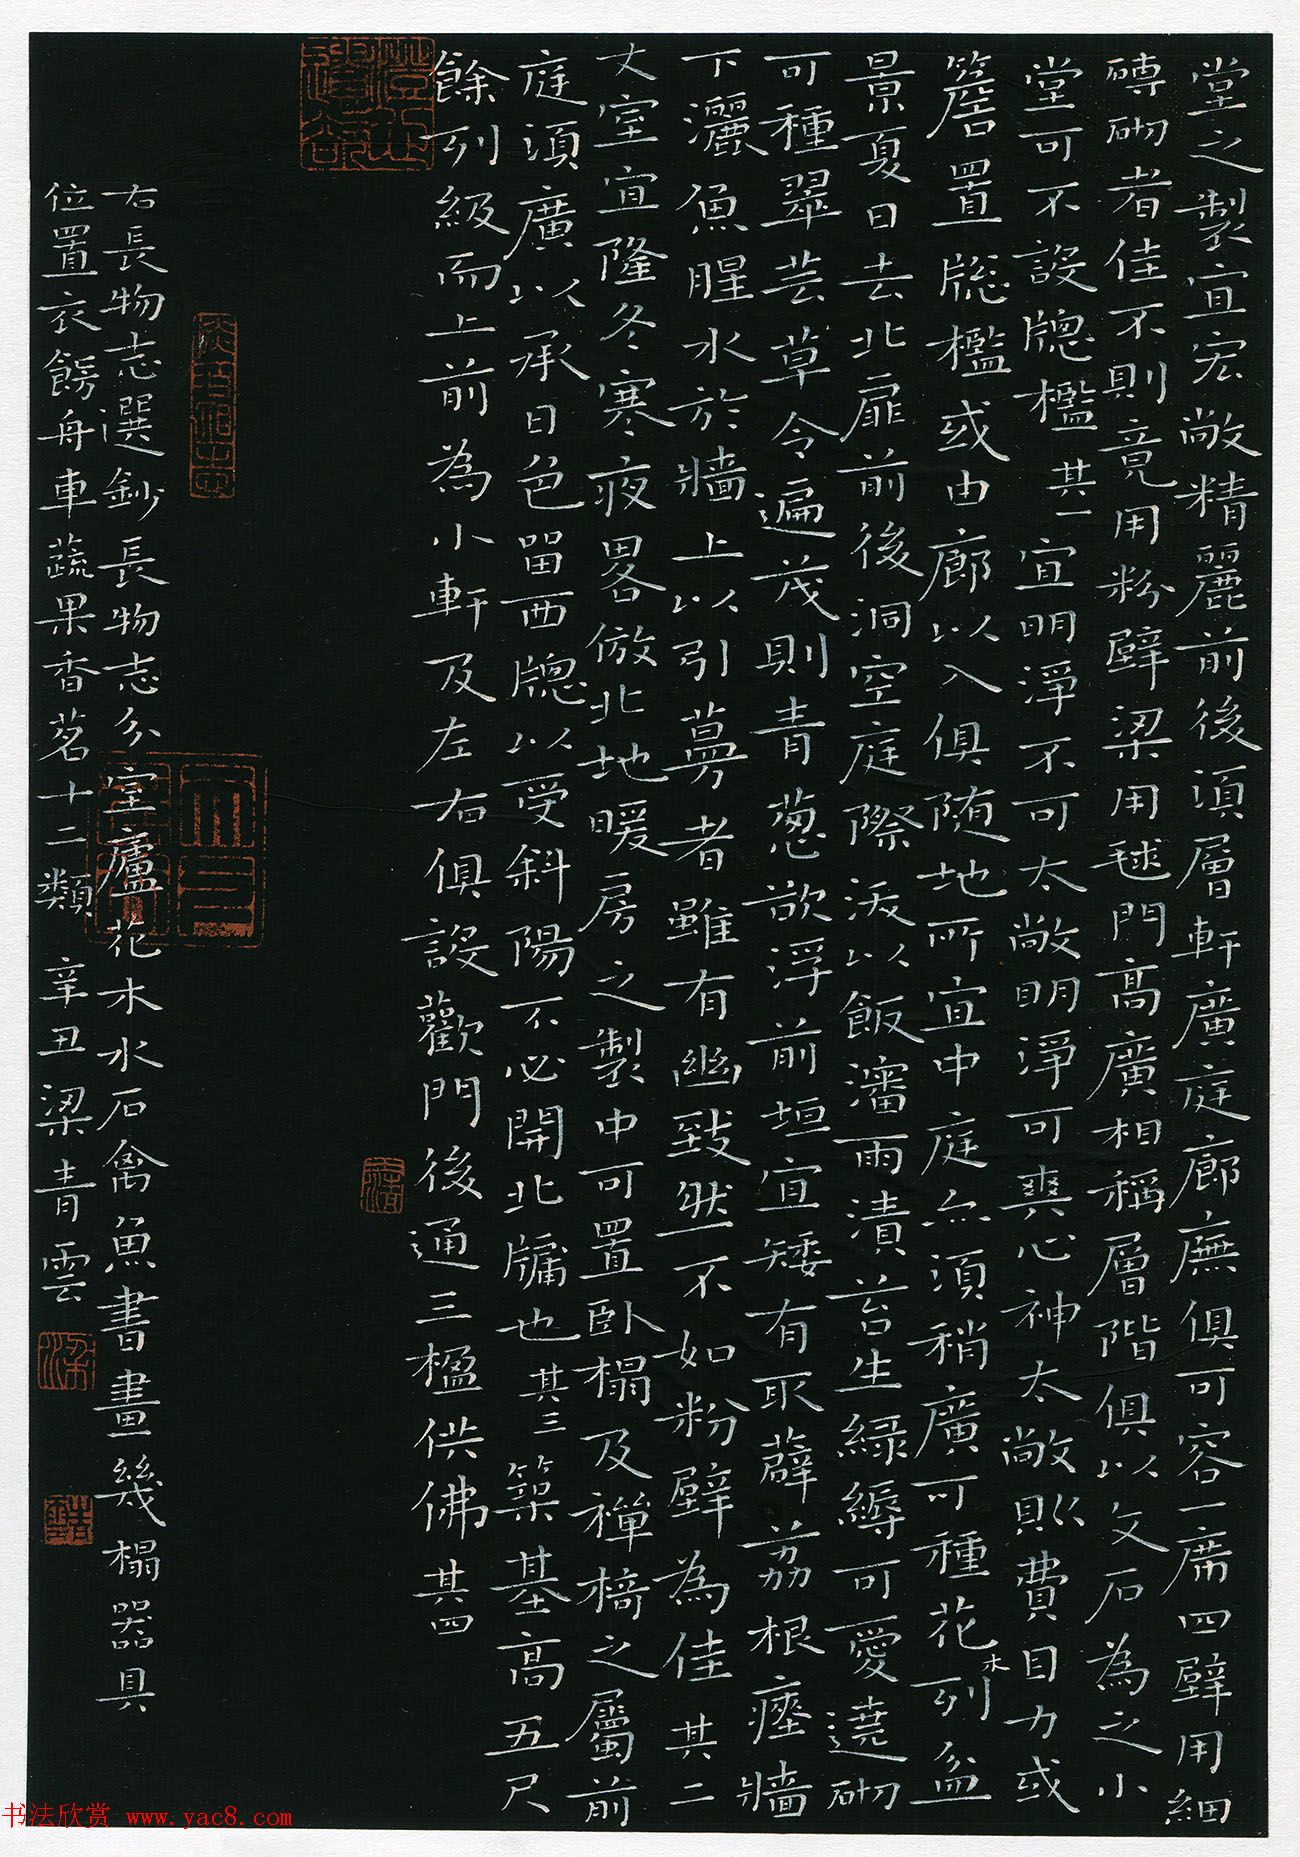 堂之製宜宏敞精麗前後須層軒廣庭廊廡俱可容一席四壁用細
磚砌者佳不則竟用粉壁梁用毬門高廣相稱層階俱以文石為之小
堂可不設牕檻其一宜明淨不可太敞明淨可爽心神太敞則費目力或
簷置牕檻或由廊以入俱随地所宜中庭亦須稍廣可種花木列盆
景夏日去北扉前後洞空庭際沃以飯瀋雨漬苔生緑縟可愛遶砌
可種翠芸草令遍茂則青葱欲浮前垣宜矮有取薜荔根瘞墻
下灑魚腥水於墻上以引蔓者雖有幽致然不如粉壁為佳其二
丈室宜隆冬寒夜畧倣北地暖房之製中可置卧榻及禪椅之屬前
庭須廣以承日色留西牕以受斜陽不必開北牖也其三築基高五尺
餘列級而上前為小軒及左右俱設歡門後通三楹供佛其四
右長物志選鈔長物志分室廬花木水石禽魚書畫幾榻器具
位置衣餝舟車蔬果香茗十二類辛丑梁青雲
书法欣赏 www.yac8.com